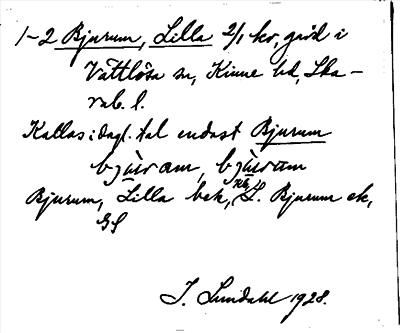 1-2 Bjurum, Lilla 2/1 hv, gård i
Vättlösa sn, Kinne hd, Ska-
rab. l.
Kallas i dagl. tal endast Bjurum
bjùram, bjùrum
Bjurum, Lilla bek, L. Bjurum ek,
GS
I. Lundahl 1928.